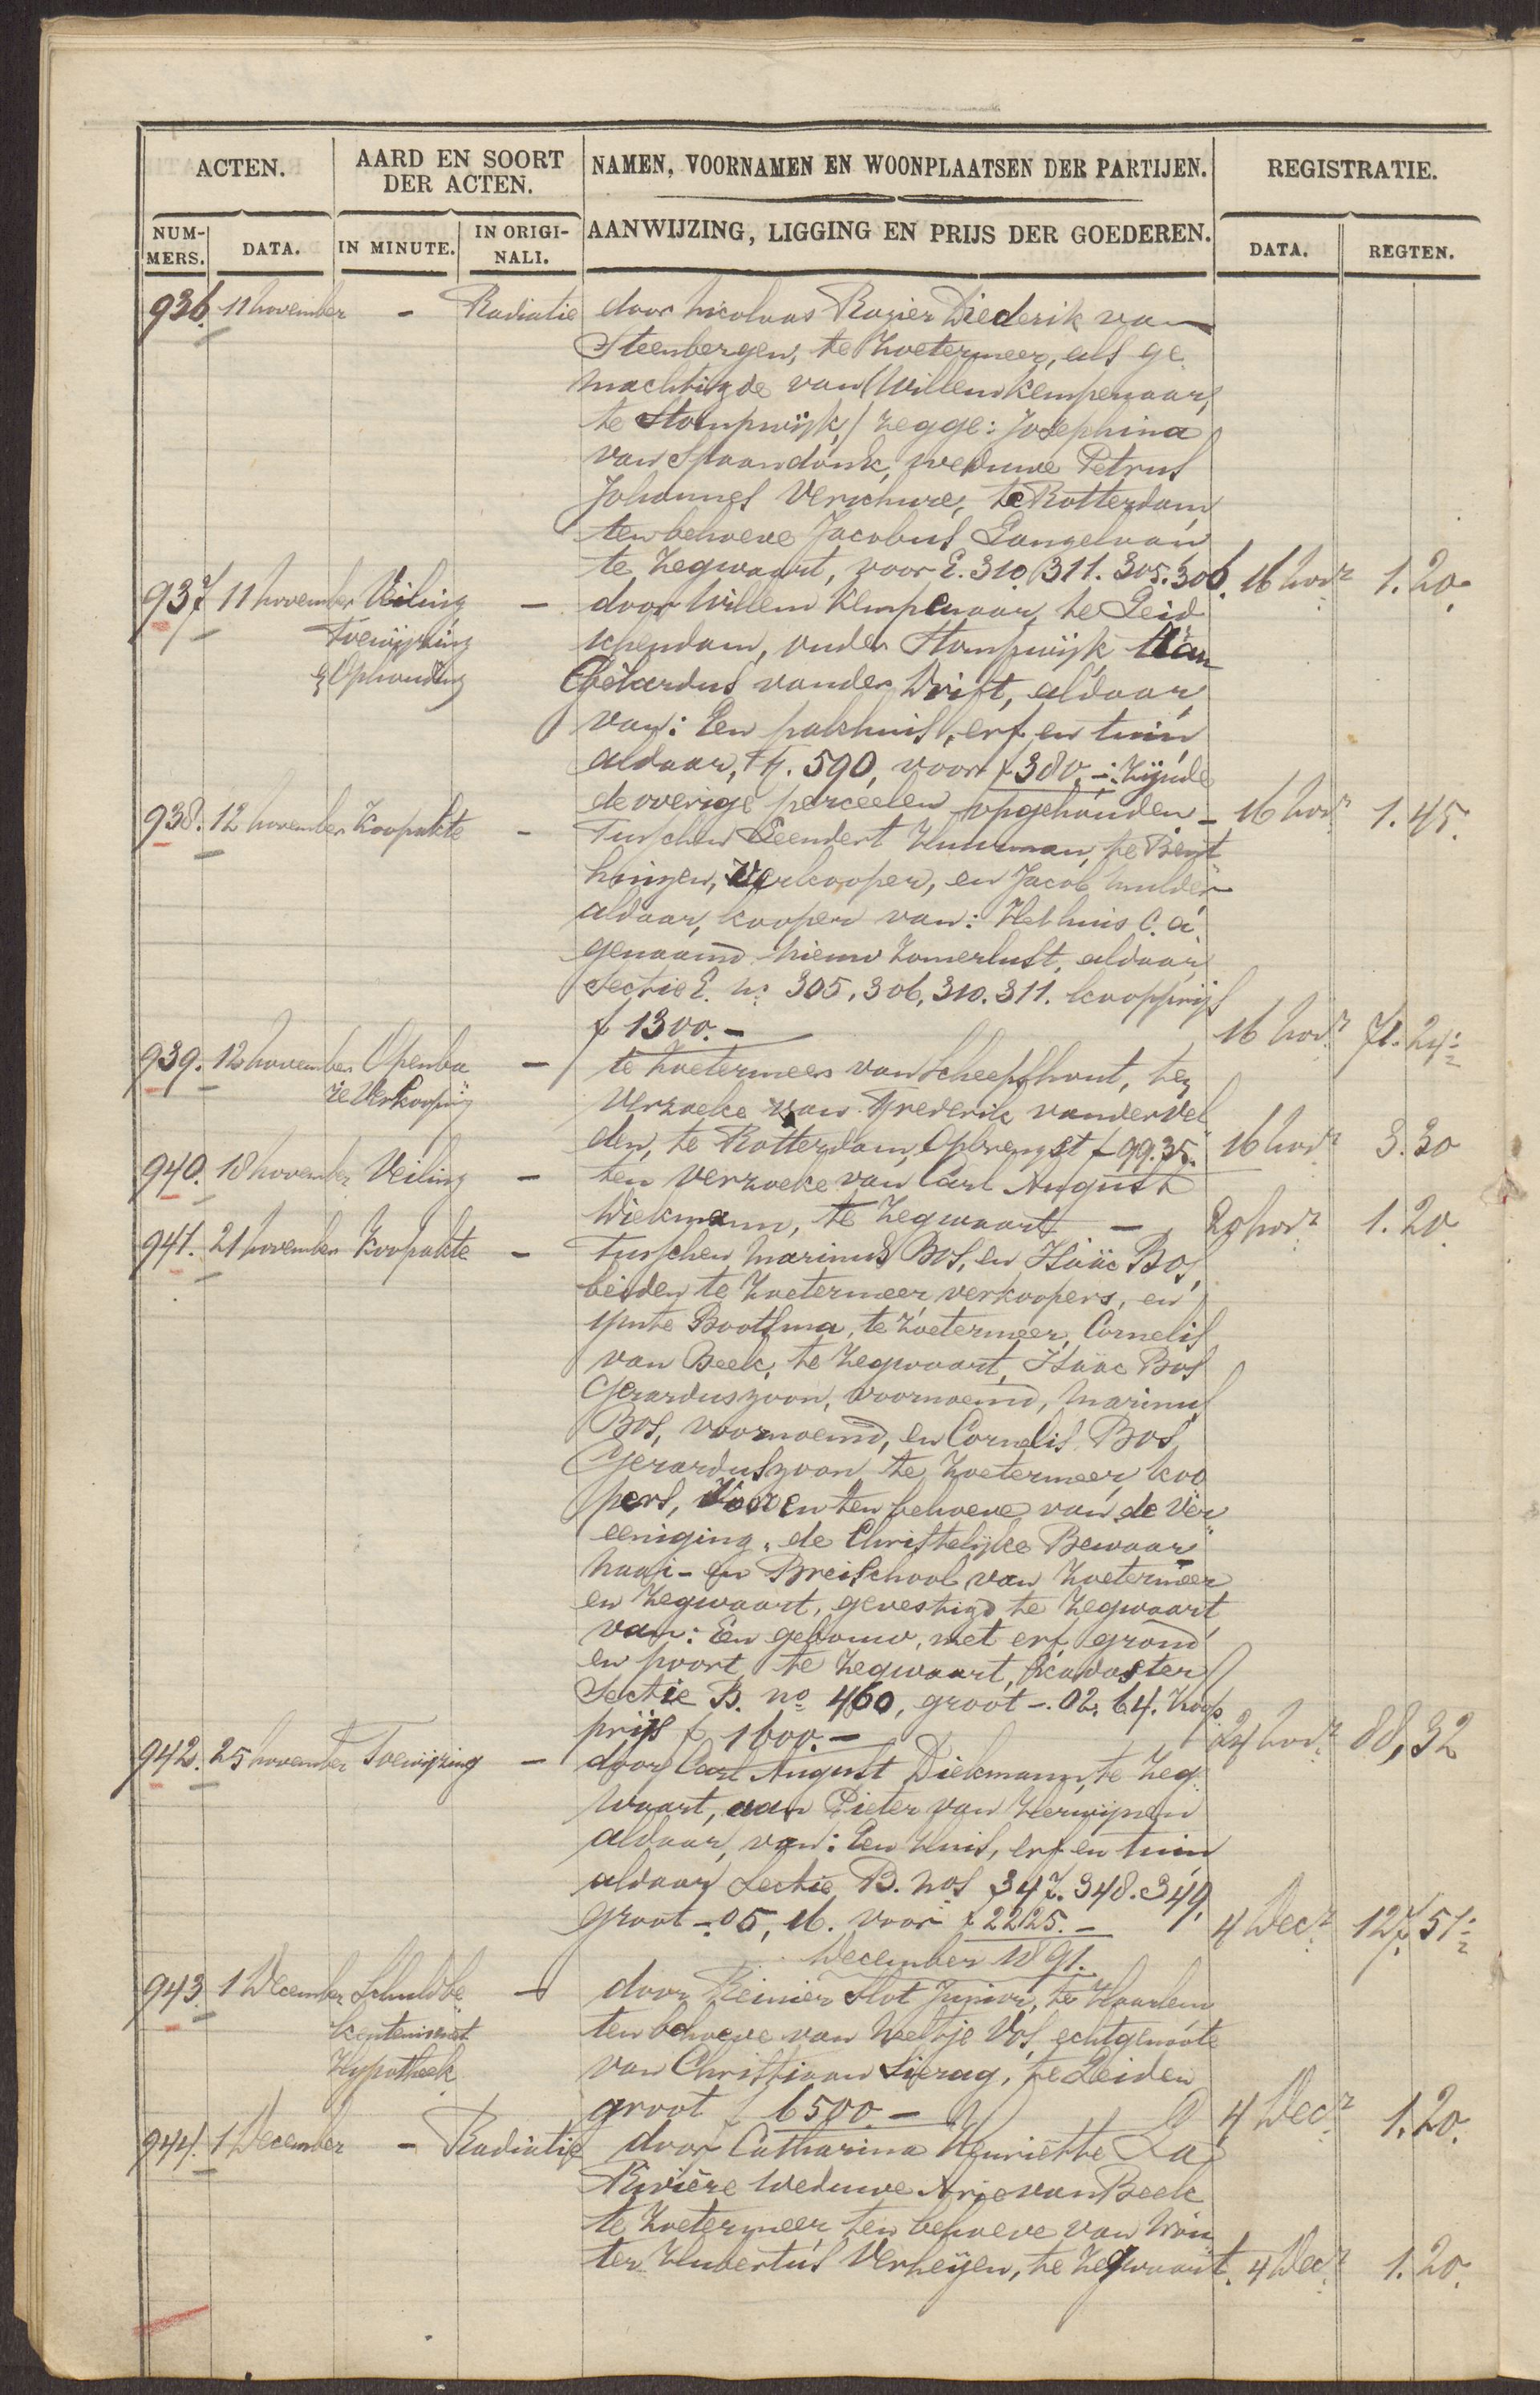 ACTEN.
AARD EN SOORT DER ACTEN.
NAMEN, VOORNAMEN EN WOONPLAATSEN DER PARTIJEN.
REGISTRATIE.
NUMMERS.
DATA.
IN MINUTE.
IN ORIGINALI.
AANWIJZING, LIGGING EN PRIJS DER GOEDEREN.
DATA.
REGTEN.
936. 11 November - Radiatie door Nicolaas Rogier Diederik van
Steenbergen, te Zoetermeer, als ge
machtigde van (Willem Kempenaar,
te Stompwijk) zegge: Josephina
van Spaandonk, weduwe Petrus
Johannes Verschure, te Rotterdam,
ten behoeve Jacobus Langelaan
te Zegwaart, voor E. 310. 311. 305. 306. 16 Novr 1.20.
937. 11 November Veiling - door Willem Kempenaar, te Leid
Toewijzing schendam, onder Stompwijk Aan
& Ophouding van der Drift, aldaar,
van: Een pakhuis, erf en tuin
aldaar, F. 590, voor f 380.-: Zijnde
de overige perceelen opgehouden. - 16 Novr 1.45.
938. 12 November Koopakte - Tusschen Leendert Huurman, te Bent
huizen, Verkooper, en Jacob Mulder
aldaar, kooper van: Het huis c.a.
genaamd Nieuw Zomerlust, aldaar,
Sectie E. No 305, 306, 310. 311. koopprijs
f 1300.- 16 Novr 71.24½
939. 12 November Openba - te Zoetermeer van Scheepshout, ten
re Verkooping verzoeke van Frederik van der Vel
den, te Rotterdam, Opbrengst f 99.35. 16 Novr 3.30
940. 18 November Veiling - ten verzoeke van Carl August
Diekmann, te Zegwaart - 20 Novr 1.20
941. 21 November Koopakte - Tusschen Marinus Bos, en Isaäc Bos,
beiden te Zoetermeer, verkoopers, en
Ypute Bootsma, te Zoetermeer, Cornelis
van Beek, te Zegwaart, Isaäc Bos
Gerarduszoon, voornoemd, Marinus
Bos, voornoemd, en Cornelis Bos
Gerarduszoon te Zoetermeer, koo
pers, Voor en ten behoeve van de Ver
eeniging „de Christelijke Bewaar
Naai- en Breischool van Zoetermeer
en Zegwaart, gevestigd te Zegwaart,
van: Een gebouw, met erf, grond
en poort, te Zegwaart, kadaster
Sectie B. no 460, groot -. 02. 64. Koop
prijs f 1600.- 24 Novr 88,32
942. 25 November Toewijzing - door Carl August Diekmann, te Zeg
waart, aan Pieter van Herwijnen
aldaar, van: Een Huis, erf en tuin
aldaar, Sectie B. Nos 347. 348. 349,
groot -. 05, 16. voor f 2225.- 4 Decr 127,51½
December 1891.
943. 1 December Schuldbe - door Reinier Slot Junior, te Haarlem
kentenis met ten behoeve van Neeltje Vos, echtgenoote
Hypotheek van Christiaan Sierag, te Leiden
groot f 6500.- 4 Decr 1.20.
944. 1 December - Radiatie door Catharina Henriëtte La
Rivière weduwe Arie van Beek
te Zoetermeer ten behoeve van Wou
ter Hubertus Verheijen, te Zegwaart. 4 Decr 1.20.